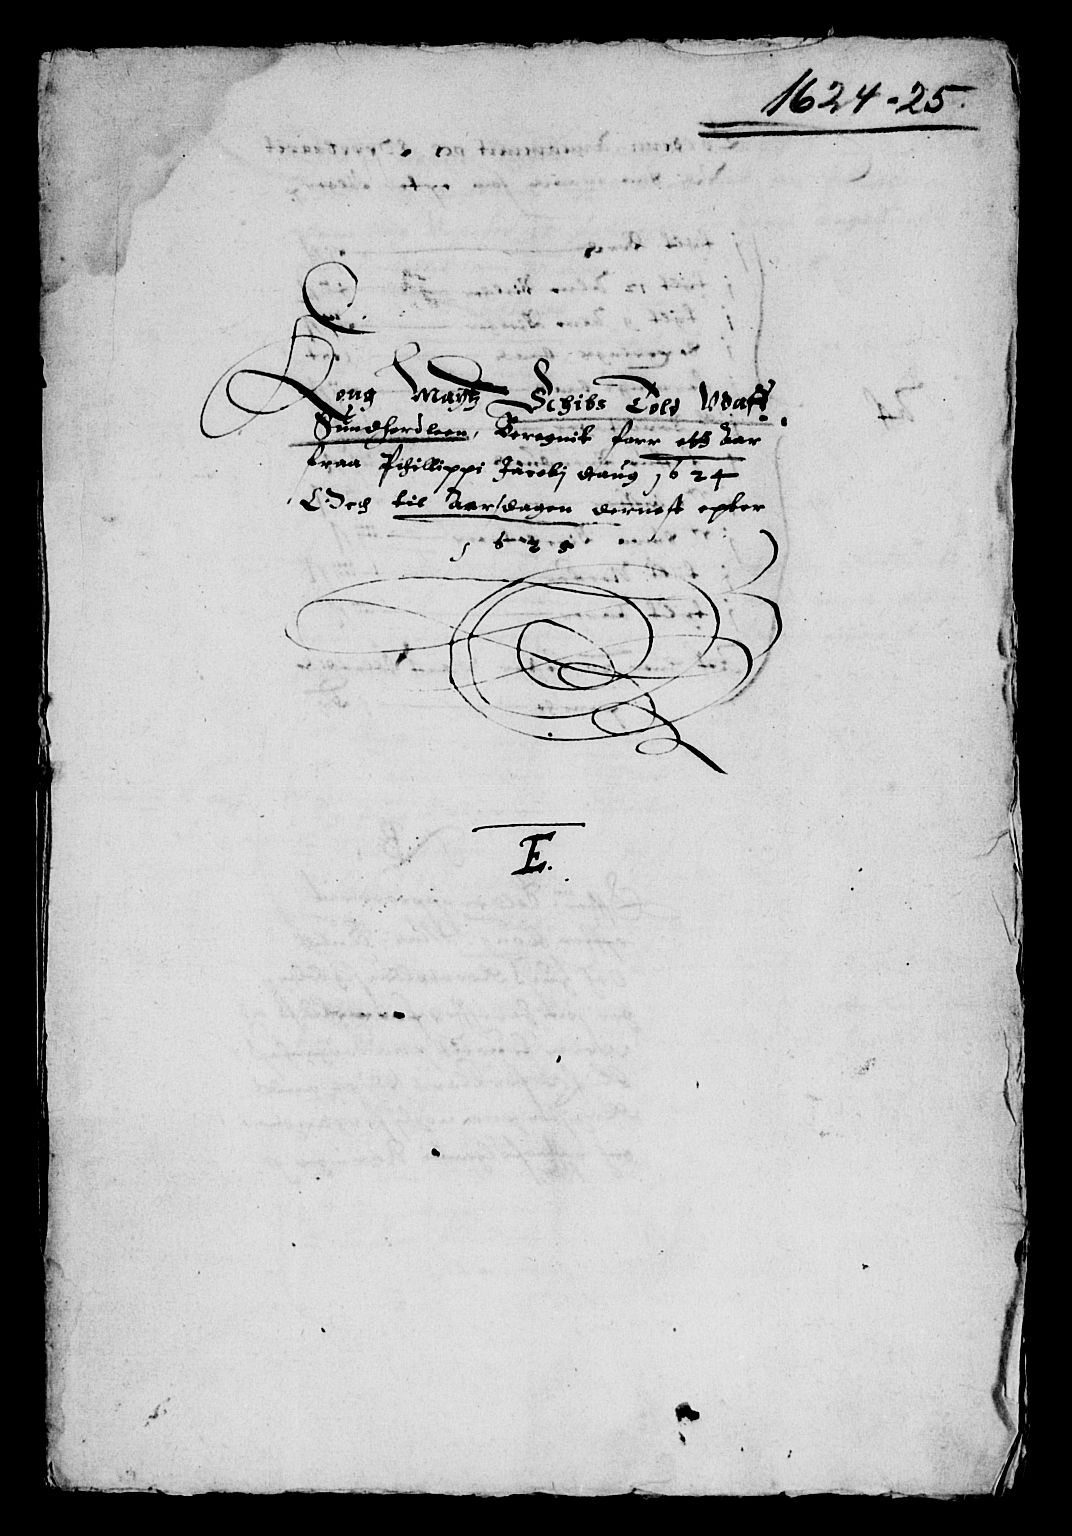 1624-25.
Kong Maytz Schibs Told Vdaff
Sundhordleen, Beregnit forr ett Aar
fraa Philippi Jacobj daug 1624
Och til Aarsdagen dernest epter
1625
E.